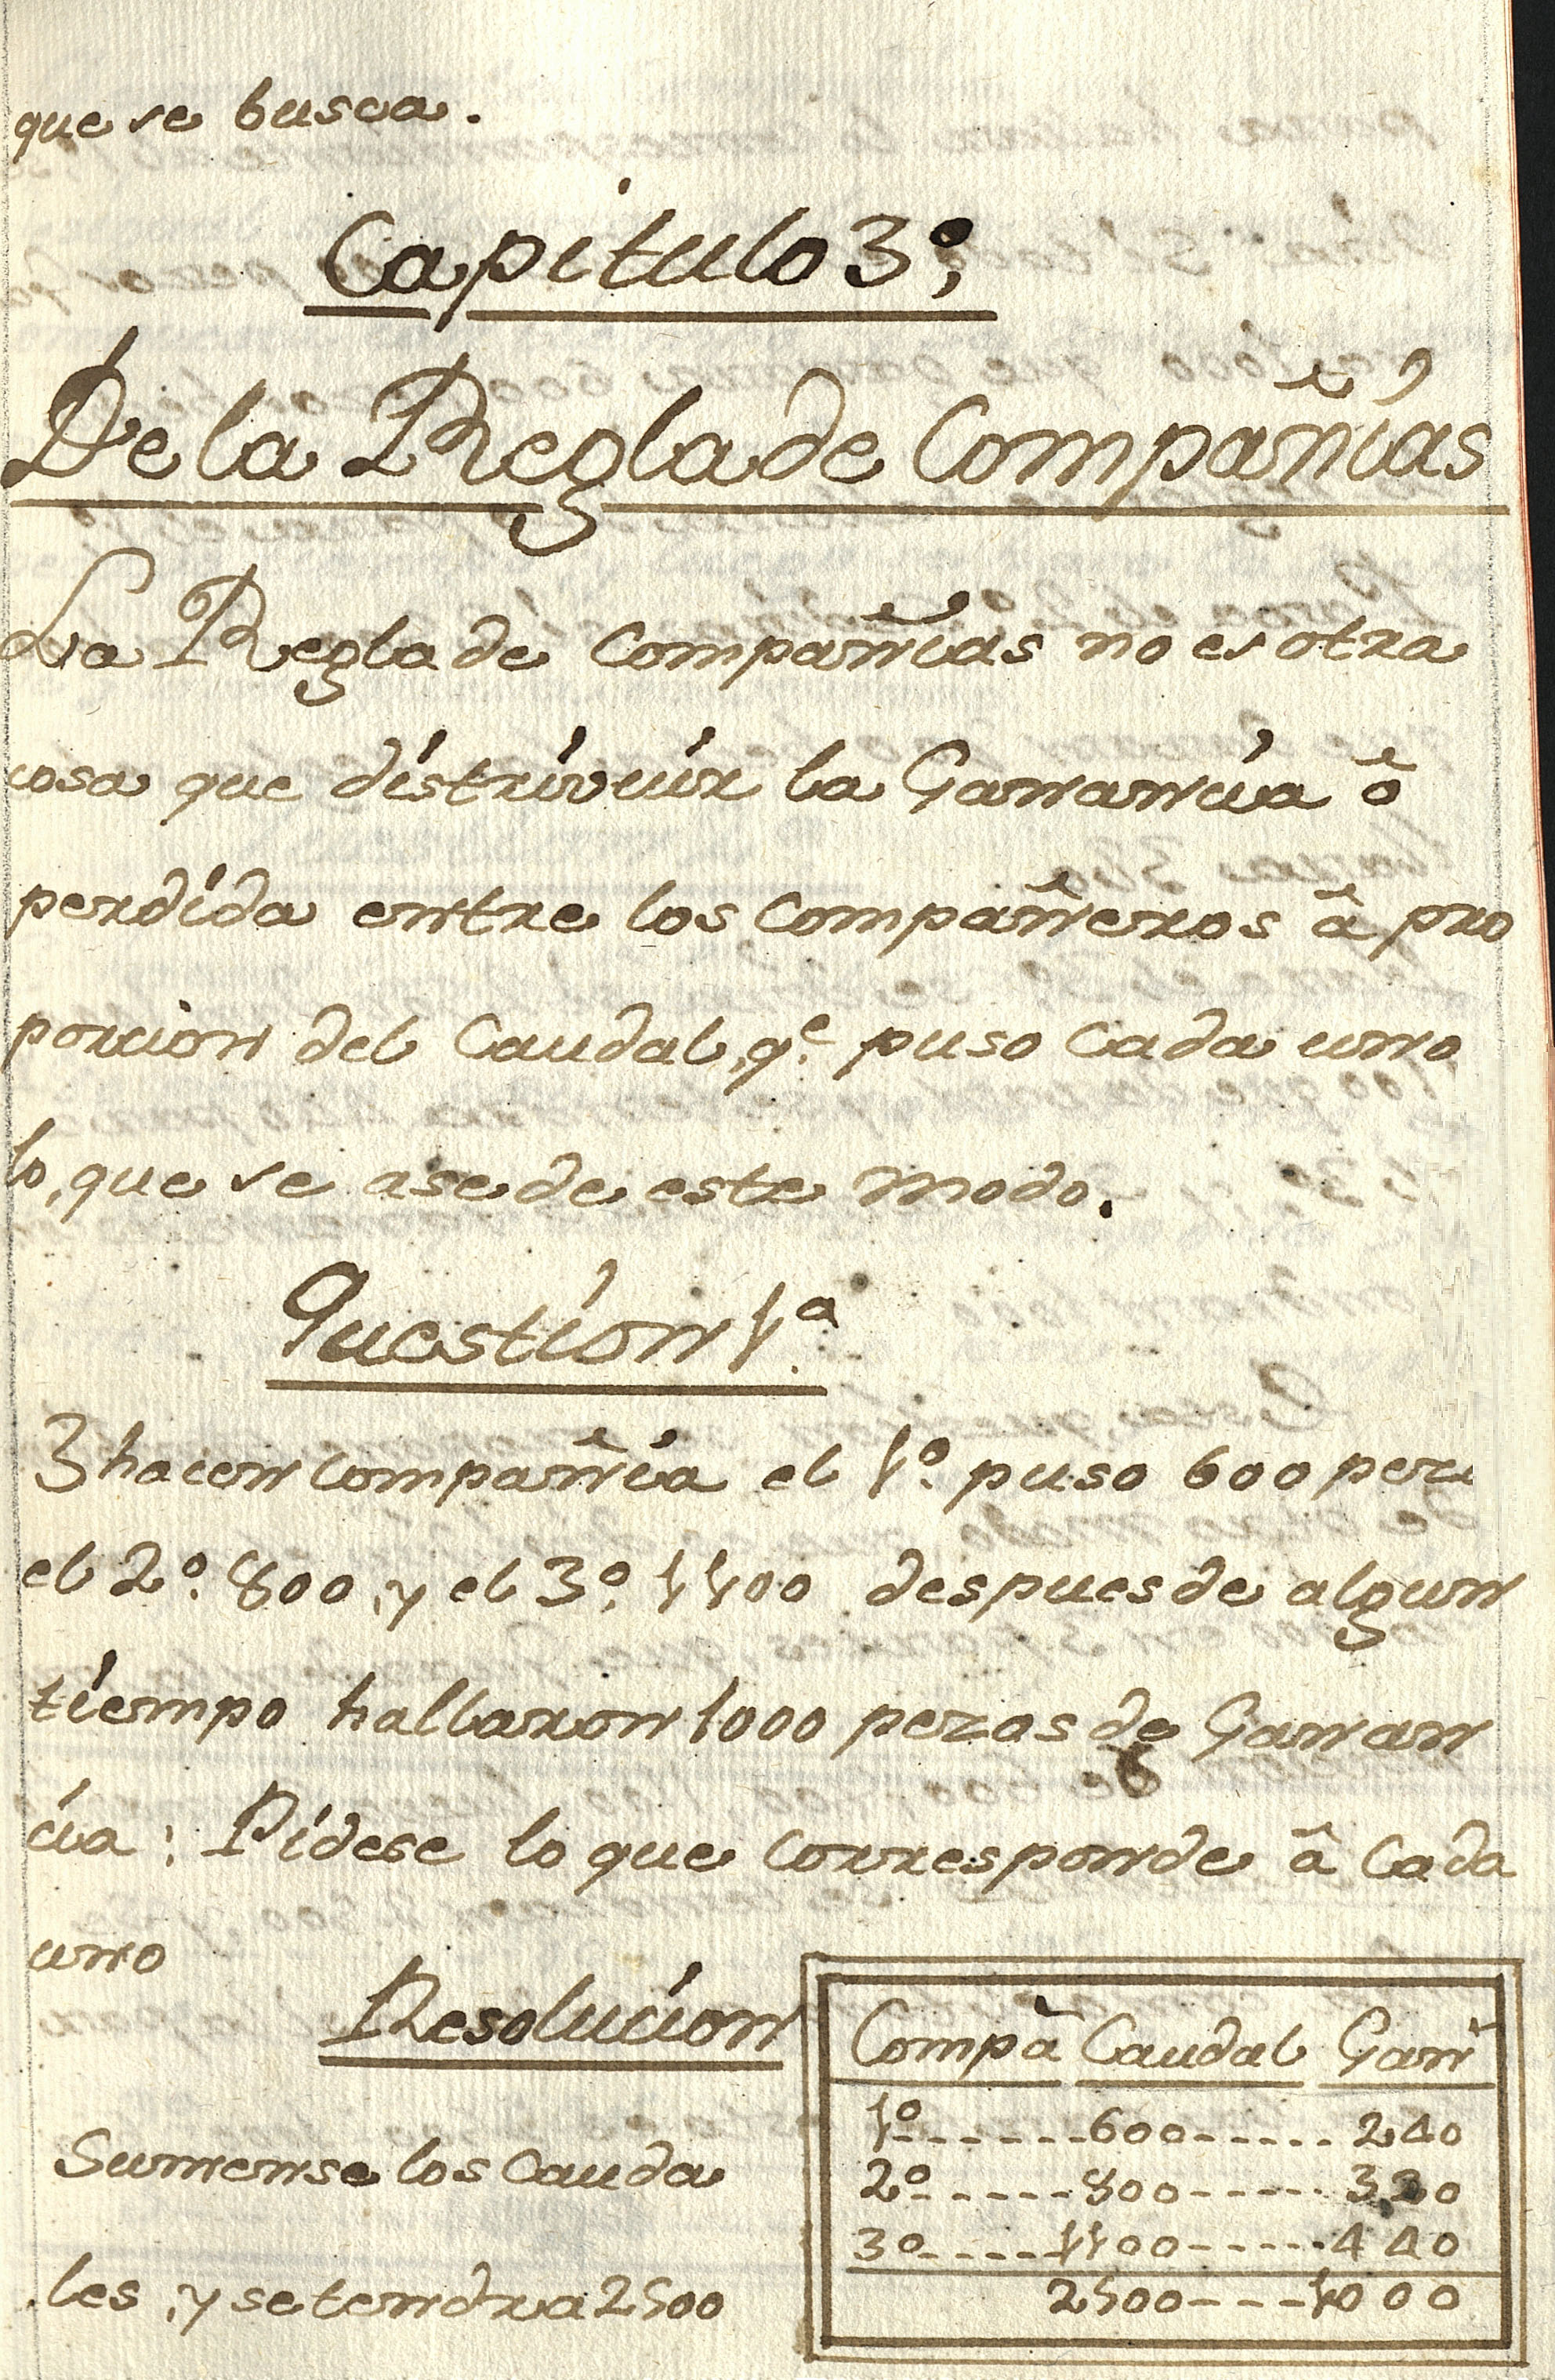 que se busca.
Capitulo 3º,
De la Regla de Compañías
La Regla de Compañias no es otra
cosa que distrivuir la Ganancia ô
perdida entre los Compañeros â pro
porcion del Caudal, qᵉ. puso Cada uno
lo, que se ase de este modo.
Question 1ª.
3 hacen Compañia el 1º. puso 600 pezo
el 2º. 800, y el 3º. 1100 despues de algun
tiempo hallaron 1000 pezos de Ganan
cia: Pidese lo que corresponde â Cada
uno
Resolucion
Sumense los Cauda
les, y se tendra 2500
Compã Caudal Gan̄
1º.------600-----. 240
2º.-----800----- 320
3º.----1100-----. 440
2500---1000